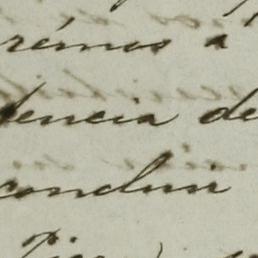 rémos a
dencia de
concluir